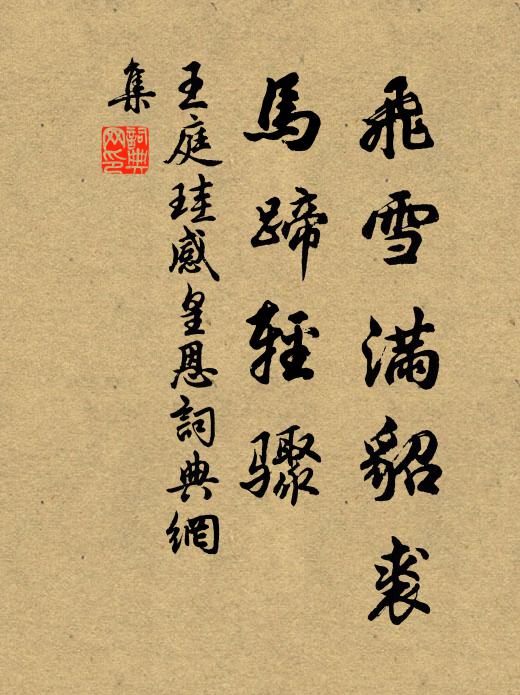 飛雪滿貂裘
馬蹄輕驟
王庭珪感皇恩詞典網
集
詞典
网印